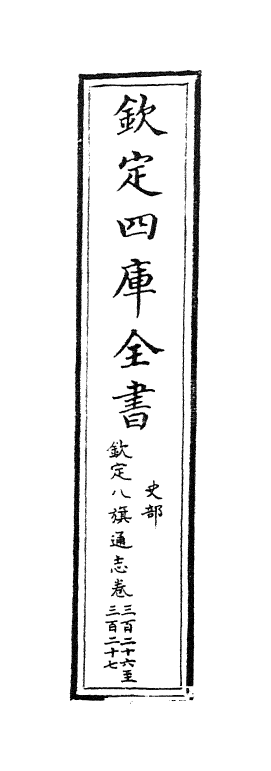 欽定四庫全書
史部
欽定八旗通志卷三百二十六至
三百二十七